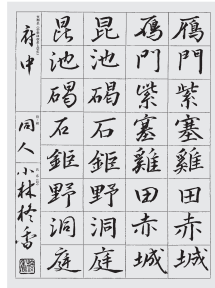 鴈門紫塞雞田赤城
鴈門紫塞雞田赤城
昆池碣石鉅野洞庭
昆池碣石鉅野洞庭
府中 同人 小林